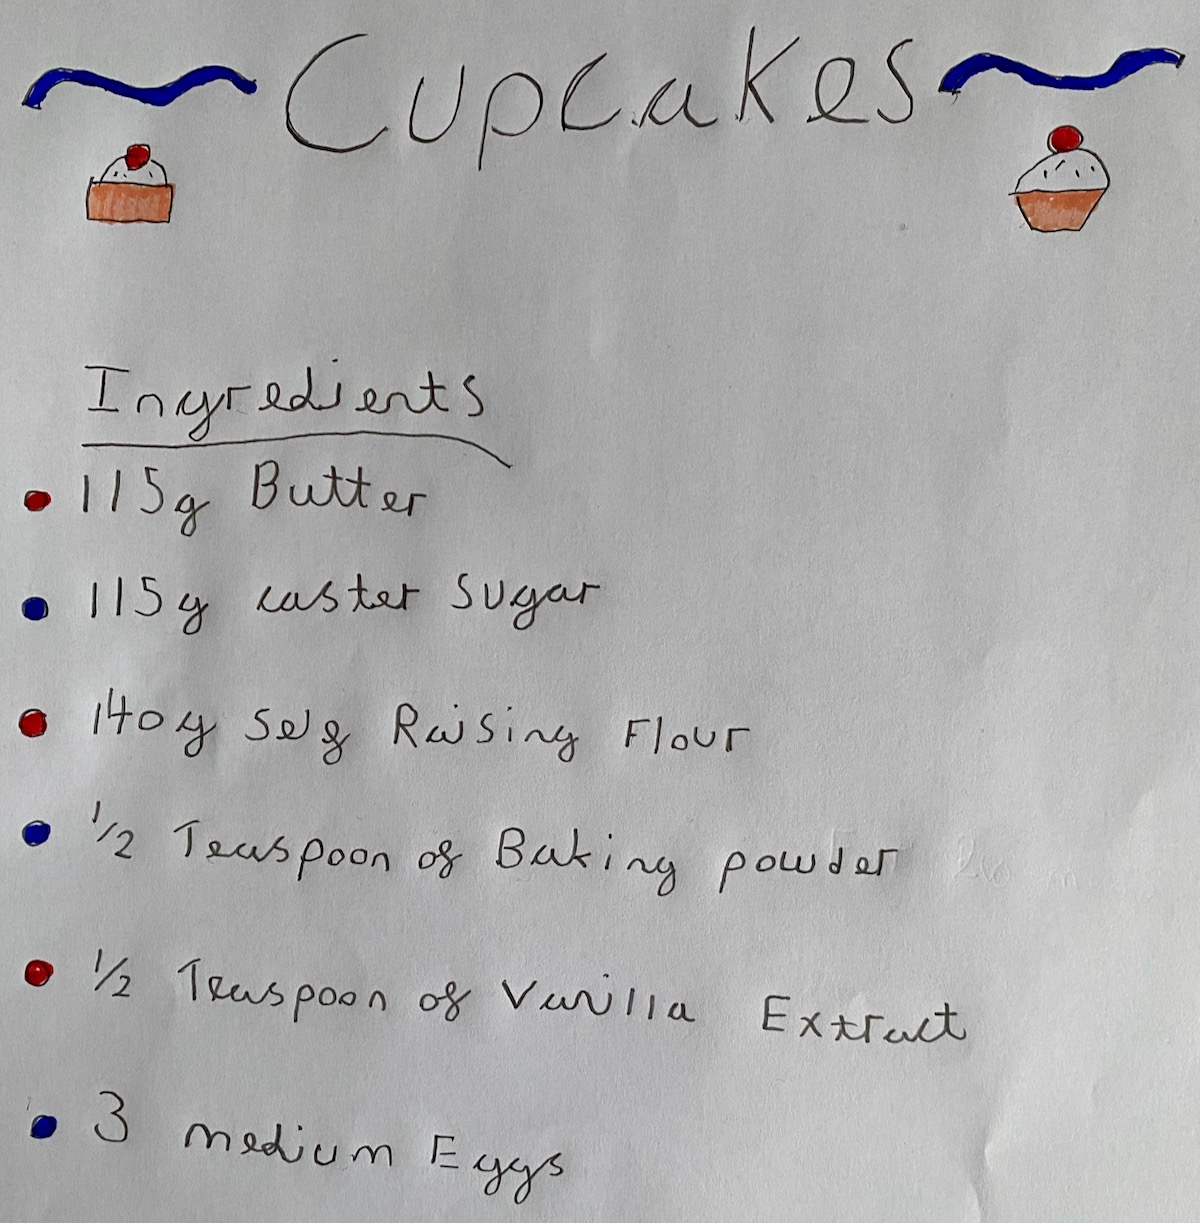 Cupcakes
Ingredients
115g Butter
115g caster Sugar
140g Self Raising Flour
1/2 Teaspoon of Baking powder
1/2 Teaspoon of Vanilla Extract
3 medium Eggs